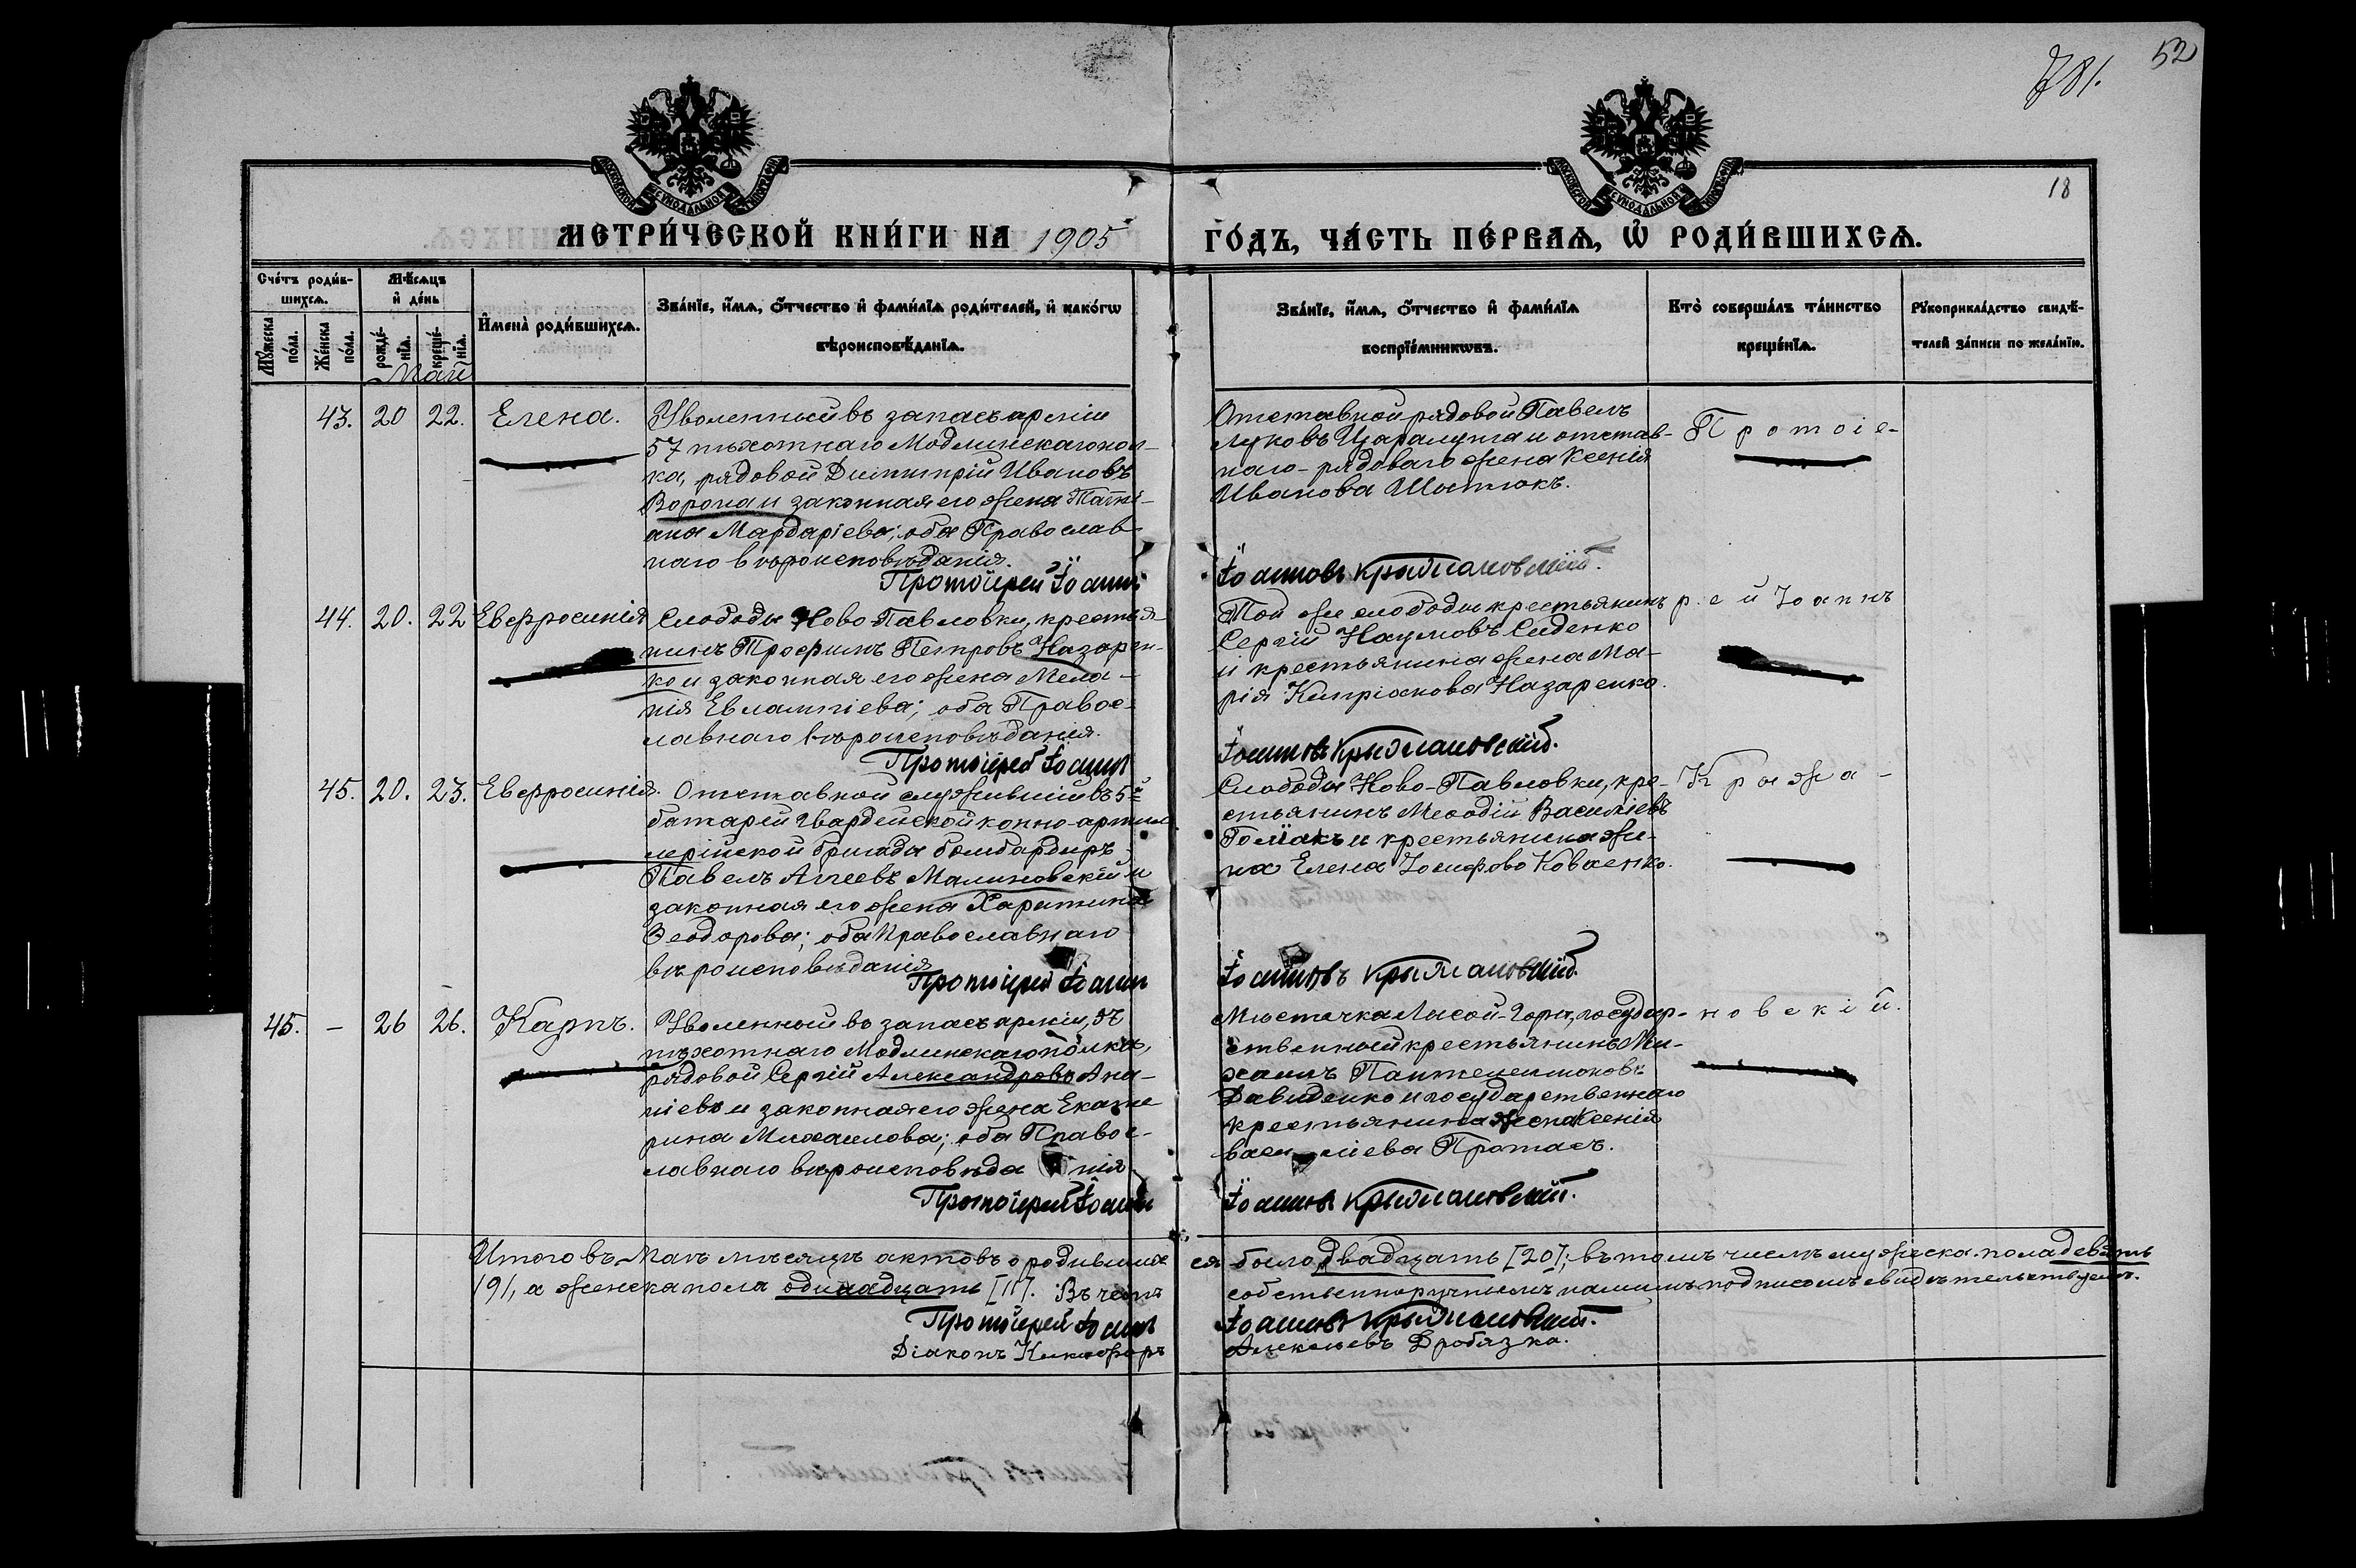 781.
52
18
МОСКОВСКОЙ СѴНОДАЛЬНОЙ ТИПОГРАФІИ
МОСКОВСКОЙ СѴНОДАЛЬНОЙ ТИПОГРАФІИ
МЕТРИ́ЧЕСКОЙ КНИ́ГИ НА 1905
ГО́ДЪ, ЧА́СТЬ ПЕ́РВАѦ, Ѡ҆ РОДИ́ВШИХСѦ.
Сче́тъ роди́в-
шихсѧ.
Мѣ́сѧцъ
и҆ де́нь
Мꙋ́жеска
по́ла.
Же́нска
по́ла.
рожде́-
нїѧ.
креще́-
нїѧ.
И҆мена̀ роди́вшихсѧ.
Зва́нїе, и҆́мѧ, ѻ҆́тчество и҆ фами́лїѧ роди́телей, и҆ како́гѡ
вѣроисповѣ́данїѧ.
Зва́нїе, и҆́мѧ, ѻ҆́тчество и҆ фами́лїѧ
воспрїе́мникѡвъ.
Кто̀ соверша́лъ та́инство
креще́нїѧ.
Рꙋкоприкла́дство свидѣ́-
телей за́писи по жела́нїю.
Май
43. 20 22. Елена.
Уволенный въ запасъ арміи
57 пѣхотнаго Модлинскаго пол-
ка, рядовой Димитрій Ивановъ
Ворона и законная его жена Тати-
ана Мардаріева; оба Православ-
наго вѣроисповѣданія.
Протоіерей Іоаннъ
Отставной рядовой Павелъ
Луковъ Царалунга и отстав-
наго рядоваго жена Ксенія
Иванова Шостакъ.
Іоанновъ Крыжановскій.
Протоіе-
44. 20. 22 Евфросинія
Слободы Ново-Павловки, крестья-
нинъ Трофимъ Петровъ Назарен-
ко и законная его жена Мела-
нія Евлампіева; оба Правос-
лавнаго вѣроисповѣданія.
Протоіерей Іоаннъ
Той же слободы крестьянинъ
Сергій Наумовъ Сиденко
и крестьянина жена Ма-
рія Кипріанова Назаренко.
Іоанновъ Крыжановскій.
рей Іоаннъ
45. 20. 23. Евфросинія.
Отставной служившій въ 5й
батареи Гвардейской конно-артил-
лерійской бригады бомбардиръ
Павелъ Агеевъ Малиновскій и
законная его жена Харитина
Ѳеодорова; оба Православнаго
вѣроисповѣданія
Протоіерей Іоаннъ
Слободы Ново-Павловки, кре-
стьянинъ Меѳодій Василіевъ
и крестьянина же-
на Елена Іосифова
Іоанновъ Крыжановскій.
Крыжа-
45. – 26 26. Карпъ.
Уволенный въ запасъ арміи, 57
пѣхотнаго Модлинскаго полка,
рядовой Сергій Александровъ Ана-
ніевъ и законная его жена Екате-
рина Михаилова; оба Правос-
лавнаго вѣроисповѣданія
Протоіерей Іоаннъ
Мѣстечка Лысой-Горы, государ-
ственный крестьянинъ Ми-
хаилъ Пантелеимоновъ
Давиденко и государственнаго
крестьянина жена Ксенія
Василіева Протасъ.
Іоанновъ Крыжановскій.
новскій.
Итого въ Маѣ мѣсяцѣ актовъ о родивших-
ся было двадцать [20]; въ томъ числѣ мужеска пола девять
[9], а женска пола одинадцать [11]. Въ чемъ
собственноручнымъ нашимъ подписомъ свидѣтельствуемъ.
Протоіерей Іоаннъ
Іоанновъ Крыжановскій.
Діаконъ Никифоръ
Алексѣевъ Дробязко.